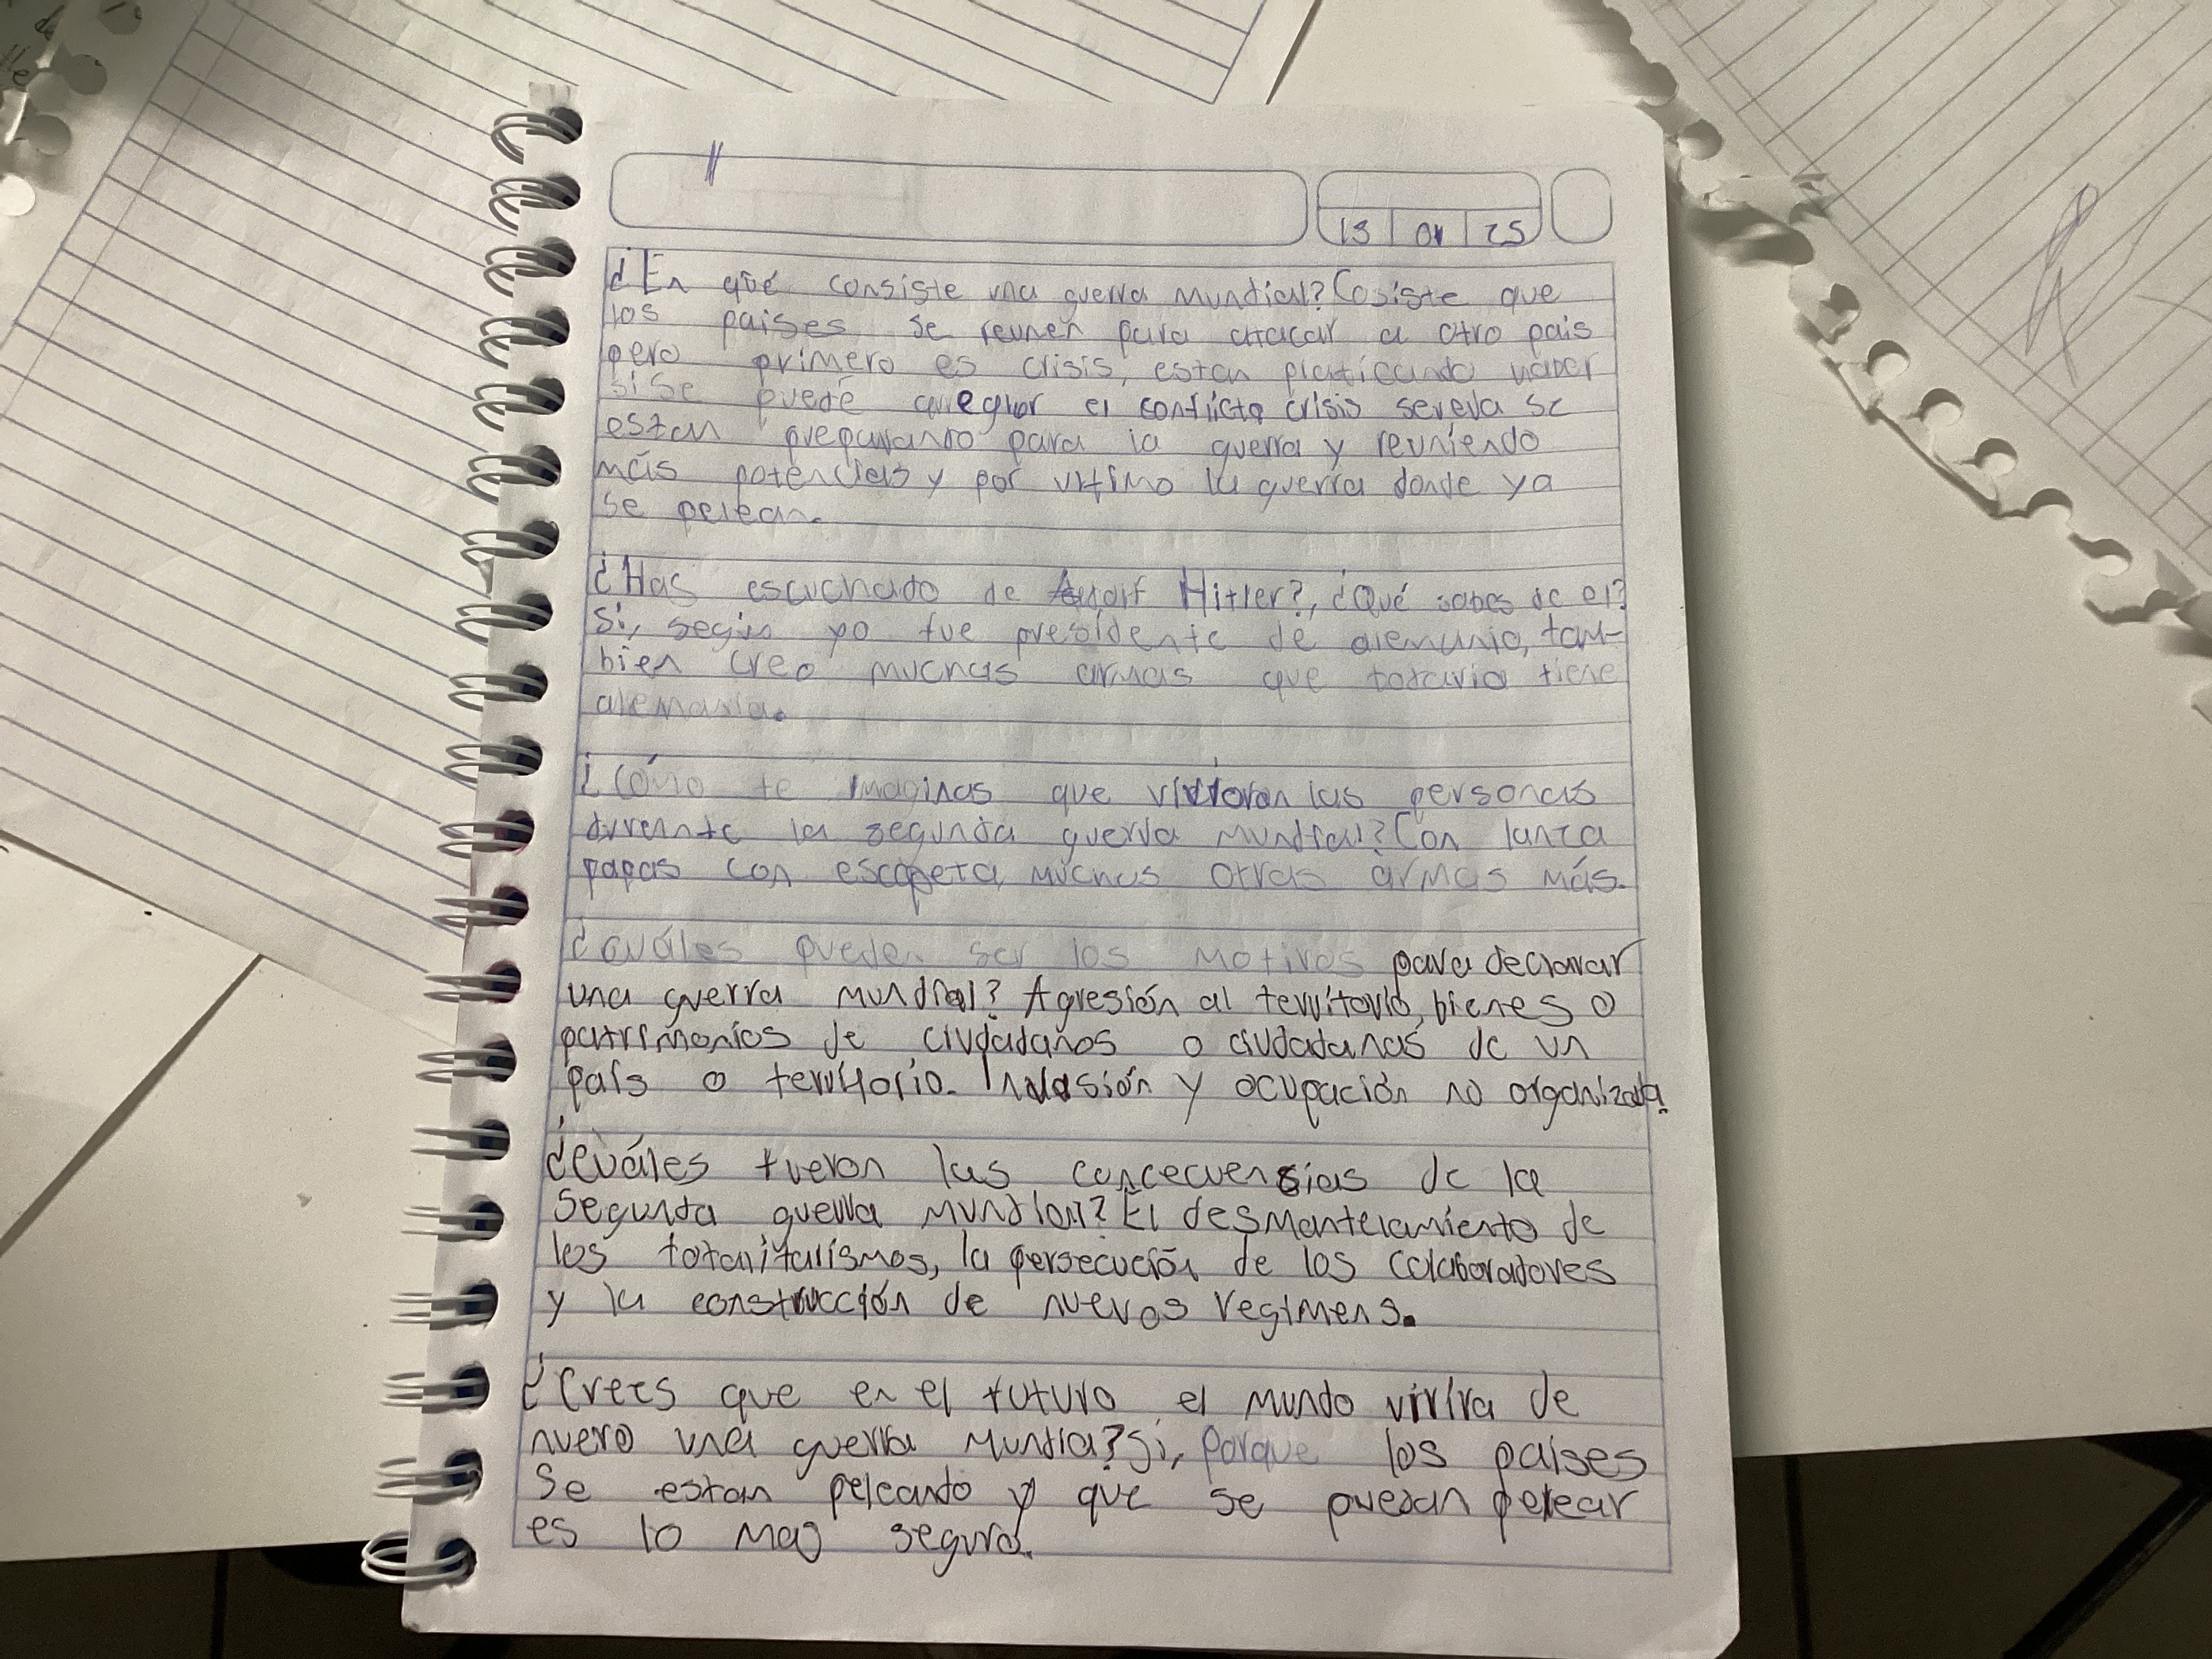 13 01 25
¿En qué consiste una guerra mundial? Cosiste que
los paises se reunen para atacar a otro pais
pero primero es crisis, estan platicando haber
si se puede arreglar el conflicto crisis severa se
estan preparando para la guerra y reuniendo
más potencias y por ultimo la guerra donde ya
se pelean.
¿Has escuchado de Hitler?, ¿Qué sabes de el?
Si, según yo fue presidente de alemania, tam-
bien creo muchas armas que todavia tiene
alemania.
¿Cómo te imaginas que vivieron las personas
durante la segunda guerra mundial? Con lanza
papas con escopeta, muchas otras armas más.
¿Cuáles pueden ser los motivos para declarar
una guerra mundial? Agresión al territorio, bienes o
patrimonios de ciudadanos o ciudadanas de un
país o territorio. Invasión y ocupación no organizada.
¿Cuáles fueron las concecuensias de la
segunda guerra mundial? El desmantelamiento de
los totanitarismos, la persecución de los colaboradores
y la construcción de nuevos regimens.
¿Crees que en el futuro el mundo vivíra de
nuevo una guerra mundia? Si, porque los países
se estan peleando y que se puedan pelear
es lo mas seguro.